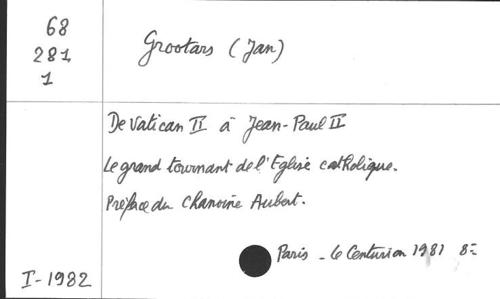 68
281
1
Grootars (Jan)
De Vatican II à Jean-Paul II
Le grand tournant de l'Eglise catholique.
Préface du Chanoine Aubert.
Paris - Le Centurion 1981 8=
I-1982